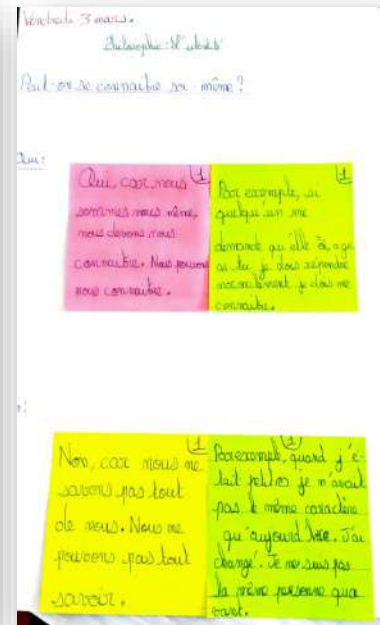 Vendredi 3 mars.
Philosophie:
Peut-on se connaitre soi-même?
Oui:
1
Oui, car nous
sommes nous même,
nous devons nous
connaitre. Nous pouvons
nous connaitre.
1
Par exemple, si
quelqu'un me
demande qu'elle âge
as tu je dois répondre
normalement je dois me
connaitre.
:
1
Non, car nous ne
savons pas tout
de nous. Nous ne
pouvons pas tout
savoir.
1
Par exemple, quand j'é-
tait petites je n'avait
pas le même caractère
qu'aujourd'hui. J'ai
changé. Je ne suis pas
la même personne qua
vant.